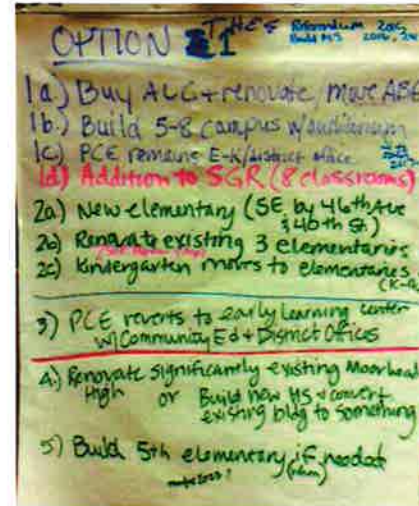 OPTION 1 THES Referendum 2015
Build MS 2016,
1a) Buy ALC + renovate/move ABE
1b.) Build 5-8 campus w/auditorium
1c) PCE remains E-K/district office
1d) Addition to SGR (8 classrooms)
2a) New elementary (SE by 46th Ave
& 40th St)
2b) Renovate existing 3 elementaries
2c) Kindergarten moves to elementaries
3) PCE reverts to early learning center
w/Community Ed + District Offices
4.) Renovate significantly existing Moorhead
High or Build new HS & convert
existing bldg to something
5) Build 5th elementary if needed